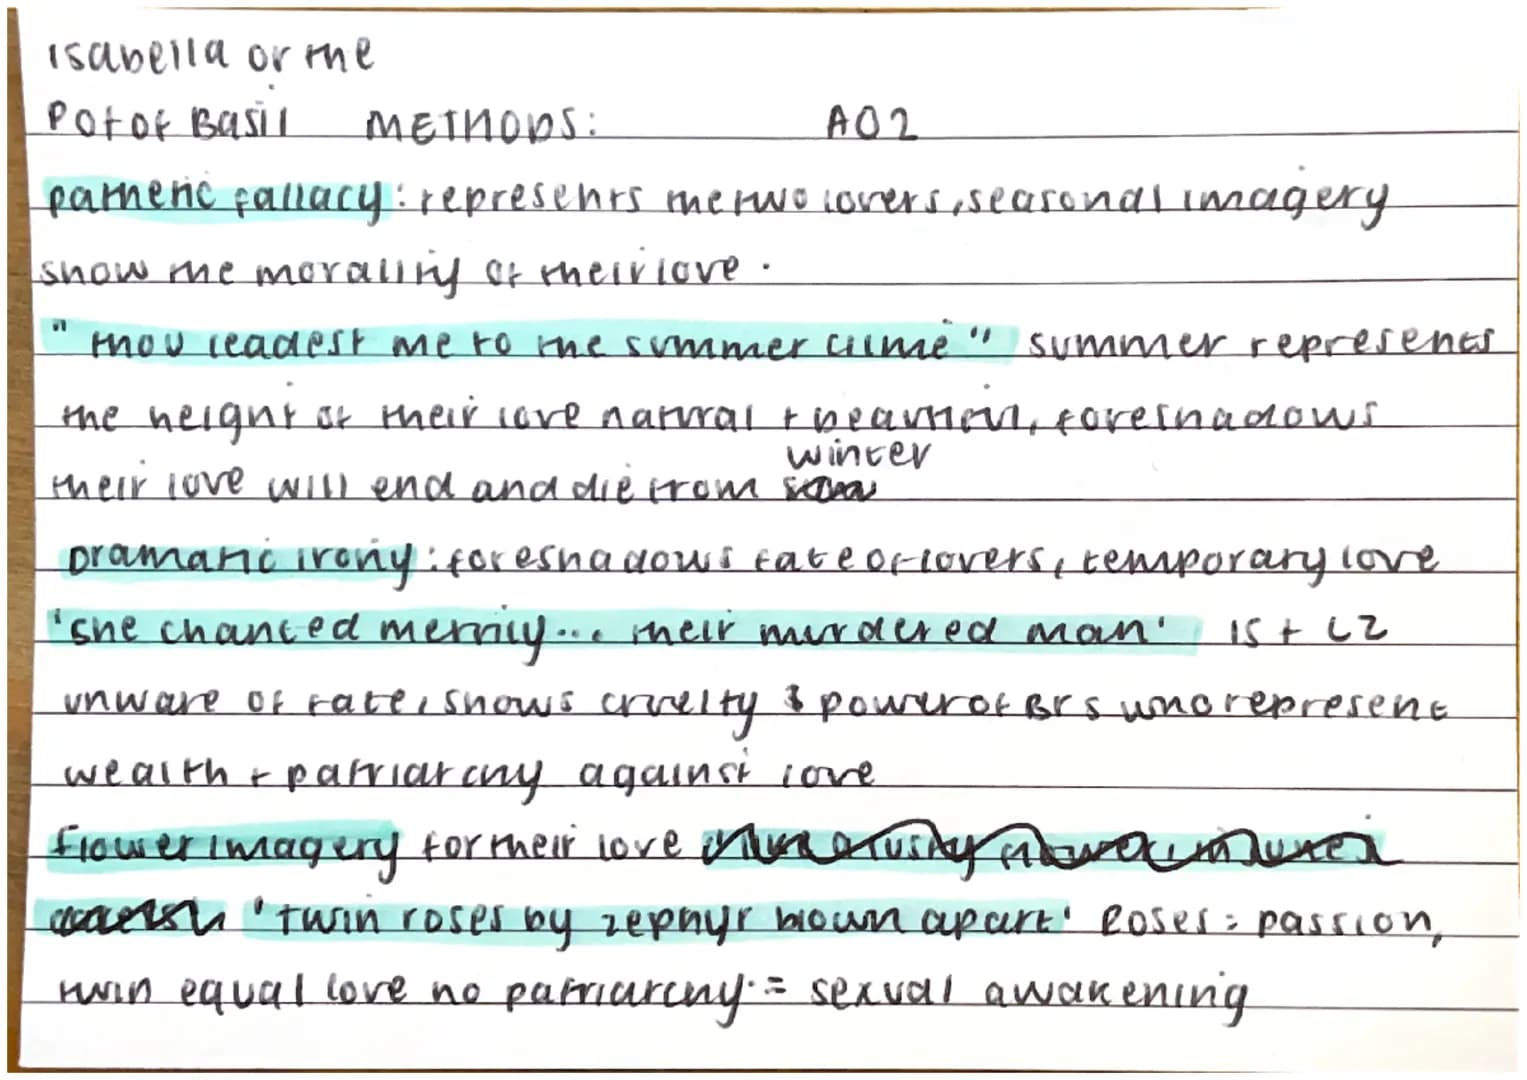 Isabella or the
Pot of Basil METHODS: AO2
pathetic fallacy: represents the two lovers, seasonal imagery
show the morality of their love.
"thou leadest me to the summer clime" summer represents
the height of their love natural + beautiful, foreshadows
winter
their love will end and die from
Dramatic irony: foreshadows fate of lovers, temporary love
'she chanted merrily... their murdered man' IS + LZ
unware of fate, shows cruelty & power of Brs who represent
wealth + patriarchy against love
flower imagery for their love
'twin roses by zephyr blown apart' Roses = passion,
twin equal love no patriarchy = sexual awakening